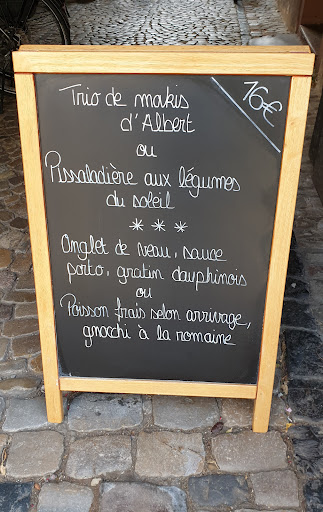 16€
Trio de makis
d'Albert
ou
Pissaladière aux légumes
du soleil
***
Onglet de veau, sauce
porto, gratin dauphinois
ou
Poisson frais selon arrivage,
gnocchi à la romaine